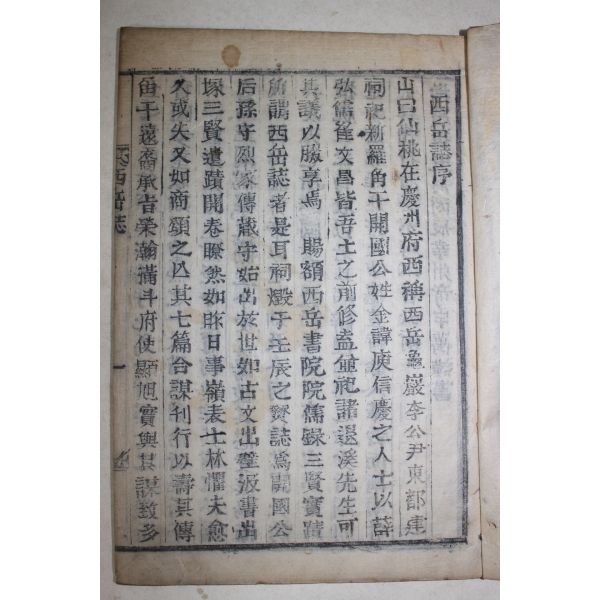 西岳誌序
山曰仙桃在慶州府西稱西岳龜巖李公尹東都建
祠祀新羅角干開國公姓金諱庾信慶之人士以薛
弘儒崔文昌皆吾土之前修盍並祀諸退溪先生可
其議以腏享焉 賜額西岳書院院儒錄三賢實蹟
所謂西岳誌者是耳祠燬于壬辰之變誌爲開國公
后孫守烈家傳藏守始出於世如古文出壁汲書出
塚三賢遺蹟開卷瞭然如昨日事嶺表士林懼夫愈
久或失又如商頌之亡其七篇合謀刊行以壽其傳
角干遠裔承旨榮瀚滿斗府使顯旭實與其謀致多
西岳誌
一